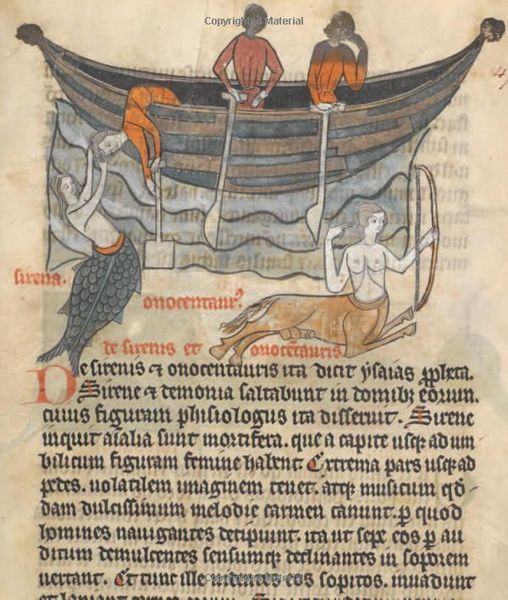 Copyrighted Material
sirena.
onocentaur᾽
de sirenis et onocētauris
De sirenis & onocentauris ita dicit ysaias ꝓph̄eta.
Sirene & demonia saltabunt in domibꝫ eorum.
cuius figuram phisiologus ita disseruit. Sirene
inquit aīalia sunt mortifera. que a capite usqꝫ ad um
bilicum figuram femine habent Extrema pars usqꝫ ad
pedes. volatilem imaginem tenet. atqꝫ musicum qd̄
dam dulcissimum melodie carmen canunt. ꝑ quod
homines nauigantes decipiunt. ita ut sepe eos ꝑ au
ditum demulcentes sensumqꝫ declinantes in soporem
uertant. Et tunc ille sopitos. inuadunt
Copyrighted Material